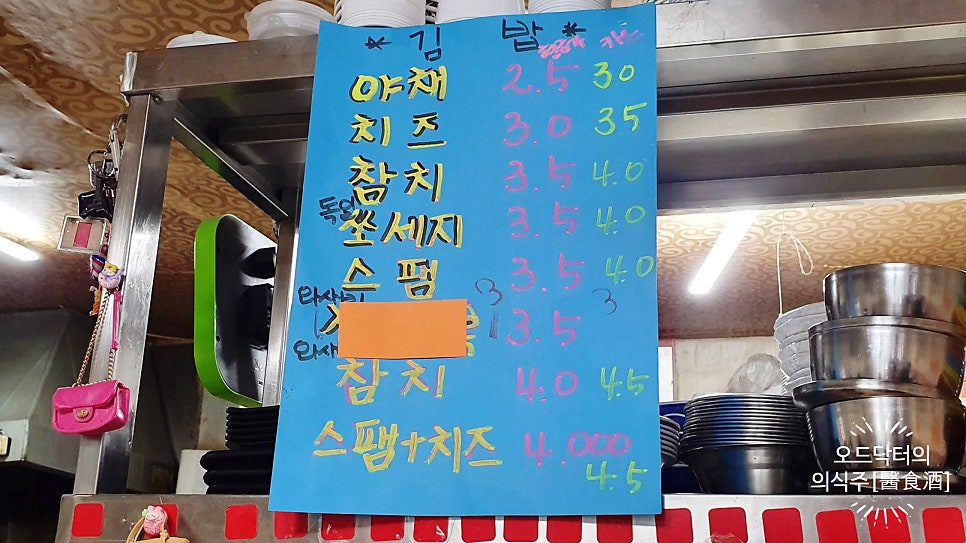 * 김 밥 *
현금 카드
야채 2.5 30
치즈 3.0 35
참치 3.5 4.0
독일
쏘세지 3.5 4.0
스팸 3.5 4.0
3 3
3.5
참치 4.0 4.5
스팸+치즈 4.000
4.5
오드닥터의
의식주[醫食酒]